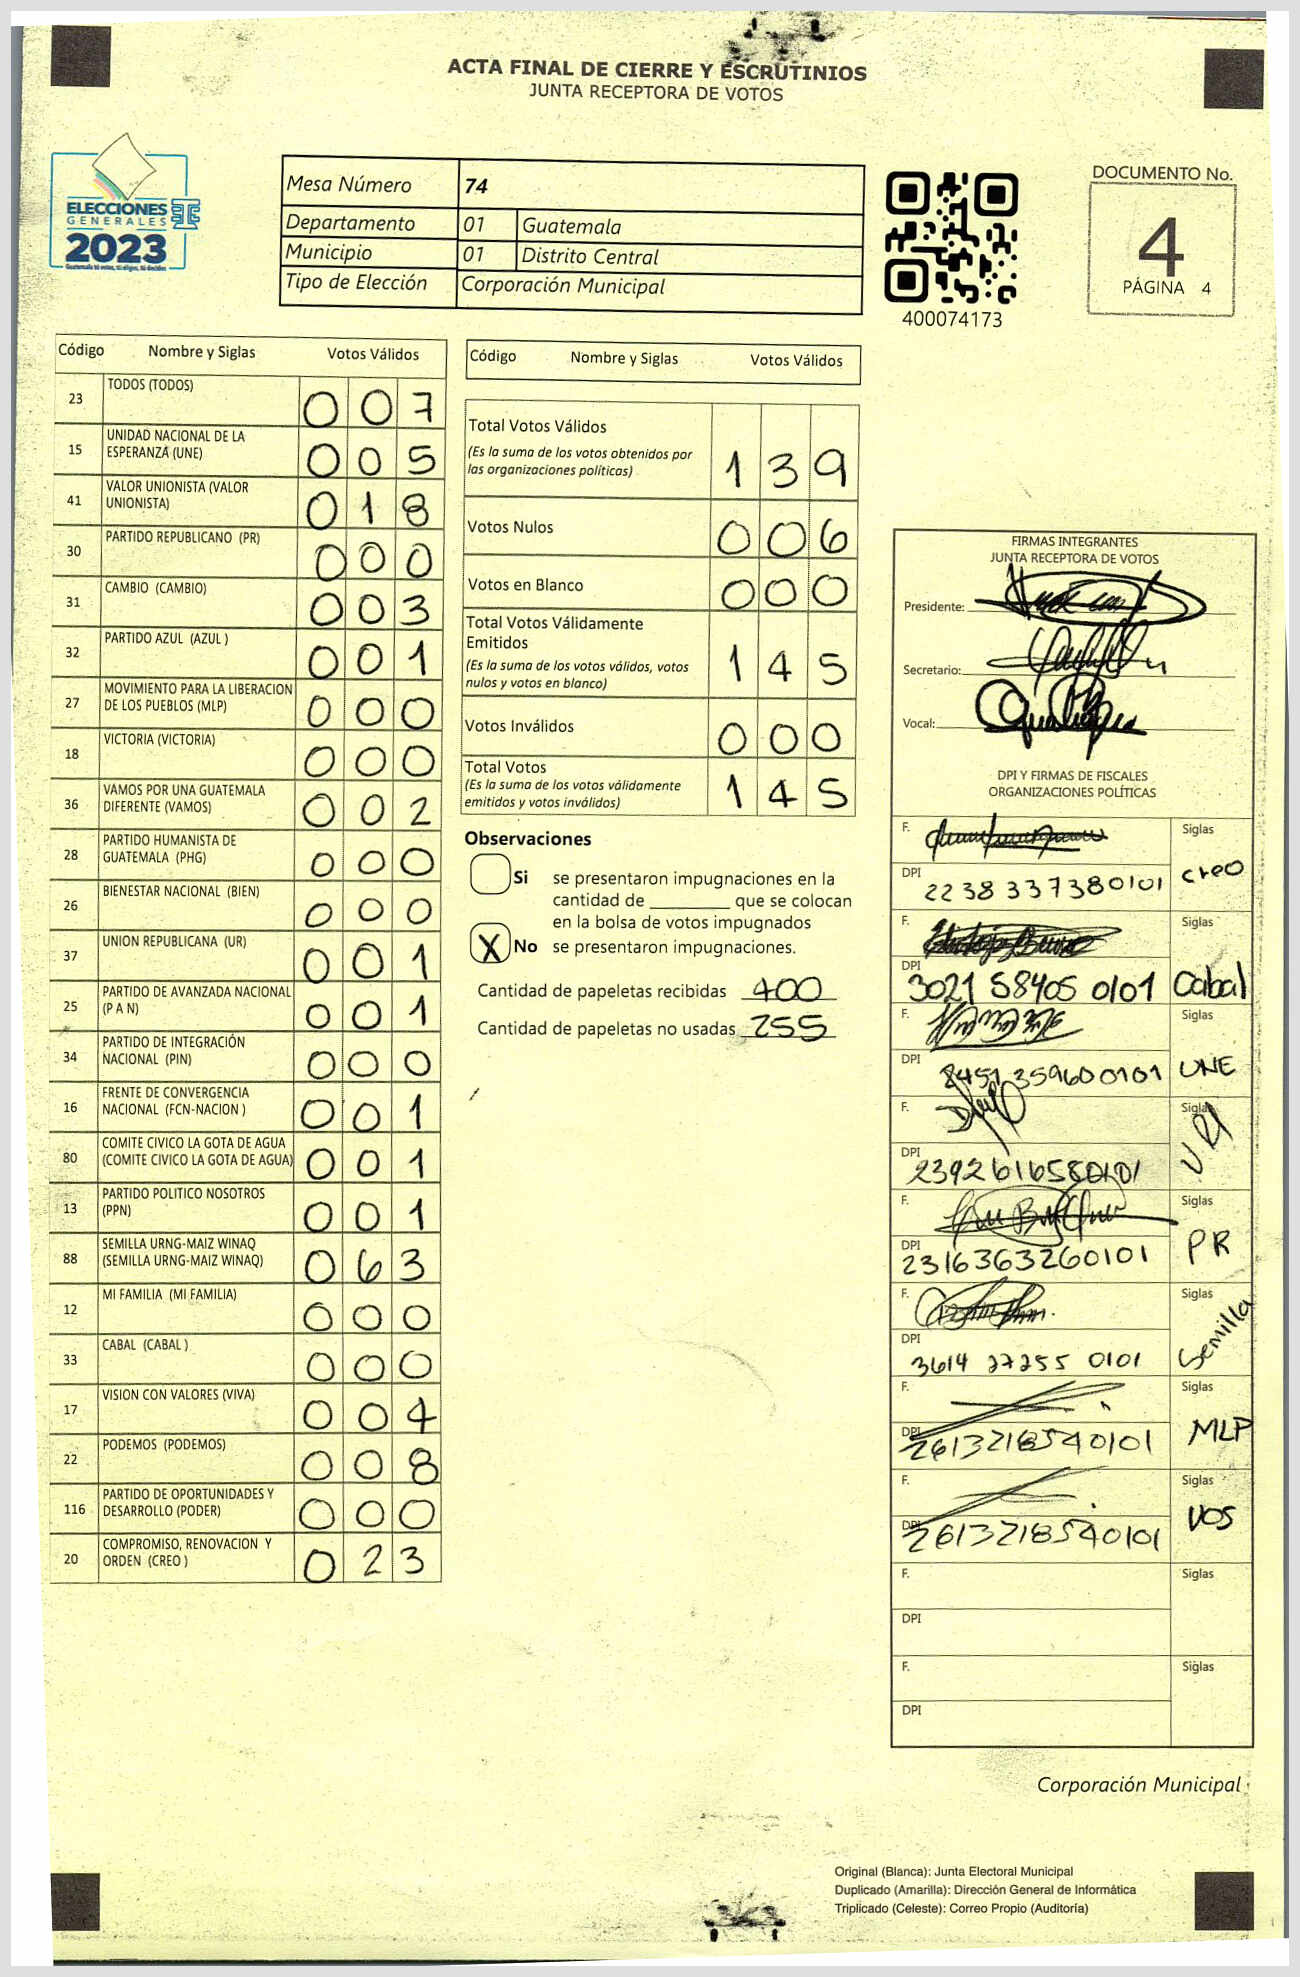 ACTA FINAL DE CIERRE Y ESCRUTINIOS
JUNTA RECEPTORA DE VOTOS
ELECCIONES
GENERALES
2023
Mesa Número 74
Departamento 01 Guatemala
Municipio 01 Distrito Central
Tipo de Elección Corporación Municipal
400074173
DOCUMENTO No.
4
PÁGINA 4
Código Nombre y Siglas Votos Válidos
23 TODOS (TODOS) 0 0 7
15 UNIDAD NACIONAL DE LA
ESPERANZA (UNE) 0 0 5
41 VALOR UNIONISTA (VALOR
UNIONISTA) 0 1 8
30 PARTIDO REPUBLICANO (PR) 0 0 0
31 CAMBIO (CAMBIO) 0 0 3
32 PARTIDO AZUL (AZUL ) 0 0 1
27 MOVIMIENTO PARA LA LIBERACION
DE LOS PUEBLOS (MLP) 0 0 0
18 VICTORIA (VICTORIA) 0 0 0
36 VAMOS POR UNA GUATEMALA
DIFERENTE (VAMOS) 0 0 2
28 PARTIDO HUMANISTA DE
GUATEMALA (PHG) 0 0 0
26 BIENESTAR NACIONAL (BIEN) 0 0 0
37 UNION REPUBLICANA (UR) 0 0 1
25 PARTIDO DE AVANZADA NACIONAL
(P A N) 0 0 1
34 PARTIDO DE INTEGRACIÓN
NACIONAL (PIN) 0 0 0
16 FRENTE DE CONVERGENCIA
NACIONAL (FCN-NACION ) 0 0 1
80 COMITE CIVICO LA GOTA DE AGUA
(COMITE CIVICO LA GOTA DE AGUA) 0 0 1
13 PARTIDO POLITICO NOSOTROS
(PPN) 0 0 1
88 SEMILLA URNG-MAIZ WINAQ
(SEMILLA URNG-MAIZ WINAQ) 0 6 3
12 MI FAMILIA (MI FAMILIA) 0 0 0
33 CABAL (CABAL ) 0 0 0
17 VISION CON VALORES (VIVA) 0 0 4
22 PODEMOS (PODEMOS) 0 0 8
116 PARTIDO DE OPORTUNIDADES Y
DESARROLLO (PODER) 0 0 0
20 COMPROMISO, RENOVACION Y
ORDEN (CREO ) 0 2 3
Código Nombre y Siglas Votos Válidos
Total Votos Válidos
(Es la suma de los votos obtenidos por
las organizaciones políticas) 1 3 9
Votos Nulos 0 0 6
Votos en Blanco 0 0 0
Total Votos Válidamente
Emitidos
(Es la suma de los votos válidos, votos
nulos y votos en blanco) 1 4 5
Votos Inválidos 0 0 0
Total Votos
(Es la suma de los votos válidamente
emitidos y votos inválidos) 1 4 5
Observaciones
Si se presentaron impugnaciones en la
cantidad de ________ que se colocan
en la bolsa de votos impugnados
X No se presentaron impugnaciones.
Cantidad de papeletas recibidas 400
Cantidad de papeletas no usadas 255
FIRMAS INTEGRANTES
JUNTA RECEPTORA DE VOTOS
Presidente:
Secretario:
Vocal:
DPI Y FIRMAS DE FISCALES
ORGANIZACIONES POLÍTICAS
F. Siglas
DPI 2238 337380101 creo
F. Siglas
DPI 3021 58405 0101 Cabal
F. Siglas
DPI 359600101 UNE
F. Siglas
DPI 2392616580101
F. Siglas
DPI 2316363260101 PR
F. Siglas
DPI 3614 27255 0101 Semilla
F. Siglas
DPI 2613218540101 MLP
F. Siglas
DPI 2613218540101 VOS
F. Siglas
DPI
F. Siglas
DPI
Corporación Municipal
Original (Blanca): Junta Electoral Municipal
Duplicado (Amarilla): Dirección General de Informática
Triplicado (Celeste): Correo Propio (Auditoría)